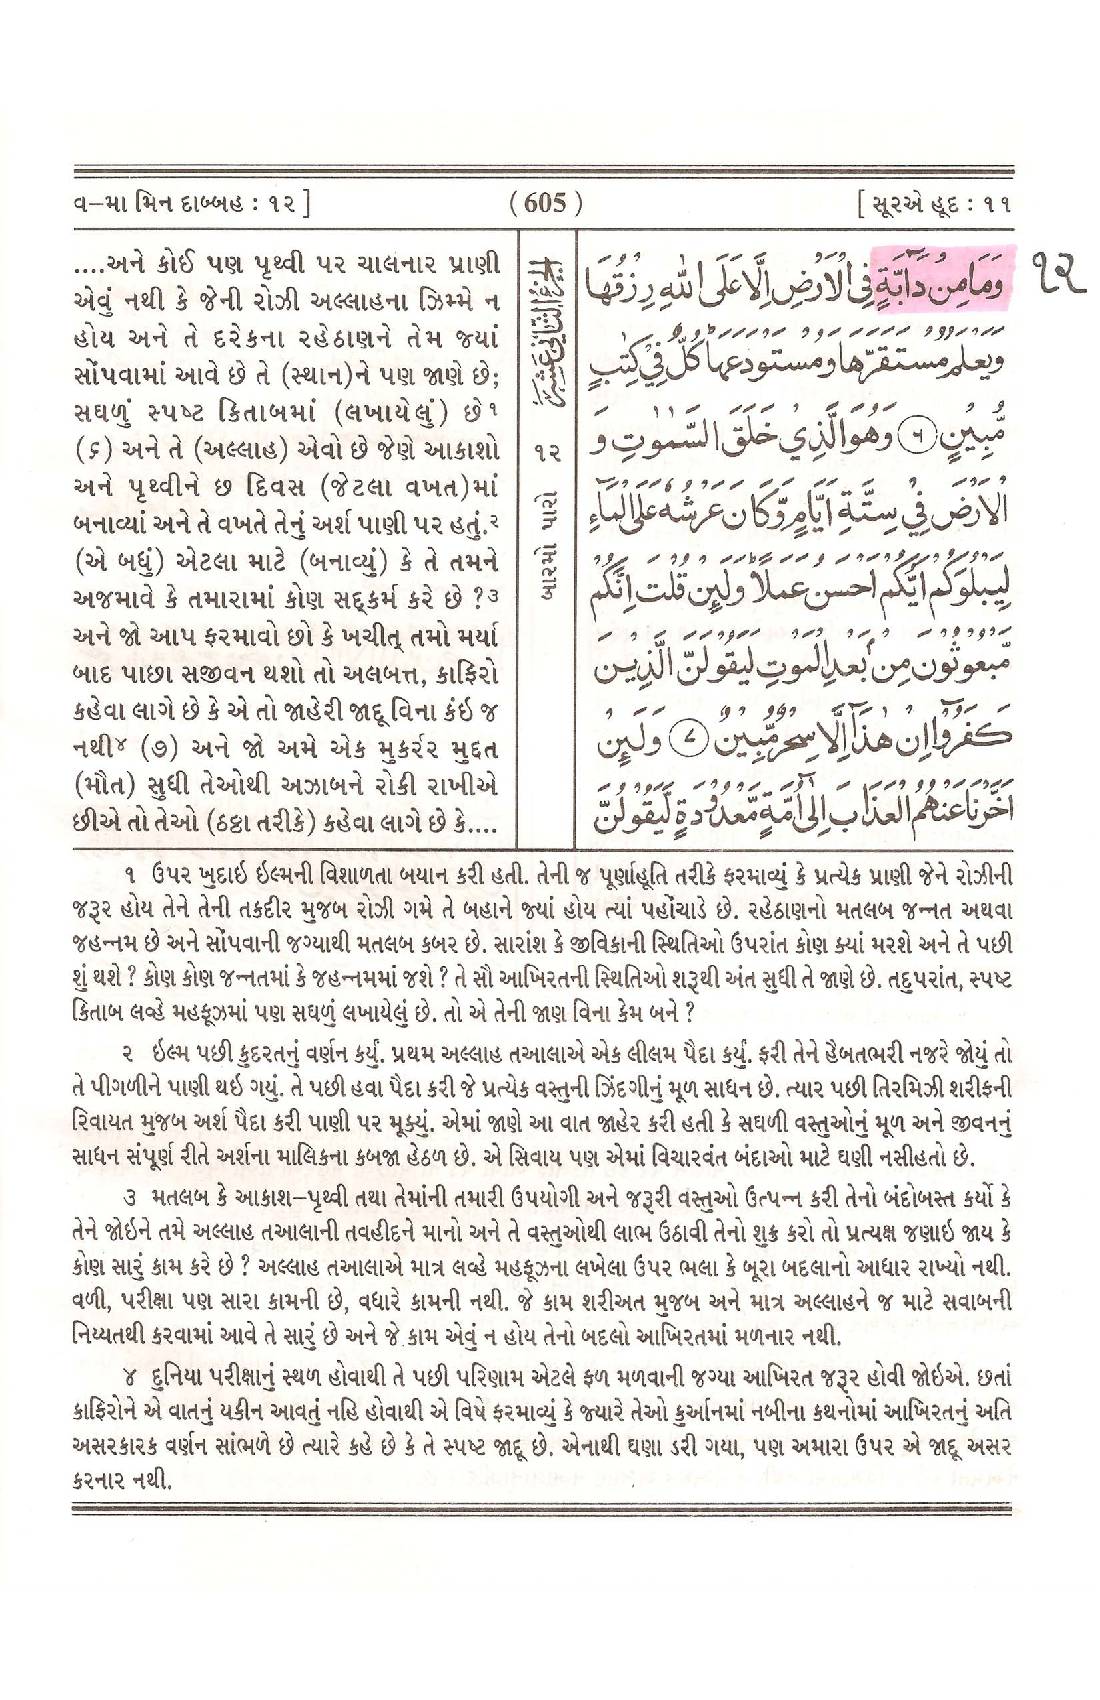 વ-મા મિન દાબ્બહ : ૧૨ ]
( 605 )
[ સૂરએ હૂદ : ૧૧
....અને કોઈ પણ પૃથ્વી પર ચાલનાર પ્રાણી
એવું નથી કે જેની રોઝી અલ્લાહના ઝિમ્મે ન
હોય અને તે દરેકના રહેઠાણને તેમ જ્યાં
સોંપવામાં આવે છે તે (સ્થાન)ને પણ જાણે છે;
સઘળું સ્પષ્ટ કિતાબમાં (લખાયેલું) છે૧
(૬) અને તે (અલ્લાહ) એવો છે જેણે આકાશો
અને પૃથ્વીને છ દિવસ (જેટલા વખત)માં
બનાવ્યાં અને તે વખતે તેનું અર્શ પાણી પર હતું.૨
(એ બધું) એટલા માટે (બનાવ્યું) કે તે તમને
અજમાવે કે તમારામાં કોણ સદ્કર્મ કરે છે ?૩
અને જો આપ ફરમાવો છો કે ખચીત્ તમો મર્યા
બાદ પાછા સજીવન થશો તો અલબત્ત, કાફિરો
કહેવા લાગે છે કે એ તો જાહેરી જાદૂ વિના કંઇ જ
નથી૪ (૭) અને જો અમે એક મુકર્રર મુદ્દત
(મૌત) સુધી તેઓથી અઝાબને રોકી રાખીએ
છીએ તો તેઓ (ઠઠ્ઠા તરીકે) કહેવા લાગે છે કે....
الجزء الثاني عشر
૧૨
બારમો પારો
وَمَا مِنْ دَآبَّةٍ فِي الْاَرْضِ اِلَّا عَلَى اللّٰهِ رِزْقُهَا
૧૨
وَيَعْلَمُ مُسْتَقَرَّهَا وَمُسْتَوْدَعَهَا ؕ كُلٌّ فِيْ كِتٰبٍ
مُّبِيْنٍ ﴿۶﴾ وَهُوَ الَّذِيْ خَلَقَ السَّمٰوٰتِ وَ
الْاَرْضَ فِيْ سِتَّةِ اَيَّامٍ وَّكَانَ عَرْشُهٗ عَلَى الْمَآءِ
لِيَبْلُوَكُمْ اَيُّكُمْ اَحْسَنُ عَمَلًا ؕ وَلَئِنْ قُلْتَ اِنَّكُمْ
مَّبْعُوْثُوْنَ مِنْۢ بَعْدِ الْمَوْتِ لَيَقُوْلَنَّ الَّذِيْنَ
كَفَرُوْۤا اِنْ هٰذَاۤ اِلَّا سِحْرٌ مُّبِيْنٌ ﴿۷﴾ وَلَئِنْ
اَخَّرْنَا عَنْهُمُ الْعَذَابَ اِلٰۤى اُمَّةٍ مَّعْدُوْدَةٍ لَّيَقُوْلُنَّ
૧ ઉપર ખુદાઇ ઇલ્મની વિશાળતા બયાન કરી હતી. તેની જ પૂર્ણાહૂતિ તરીકે ફરમાવ્યું કે પ્રત્યેક પ્રાણી જેને રોઝીની
જરૂર હોય તેને તેની તકદીર મુજબ રોઝી ગમે તે બહાને જ્યાં હોય ત્યાં પહોંચાડે છે. રહેઠાણનો મતલબ જન્નત અથવા
જહન્નમ છે અને સોંપવાની જગ્યાથી મતલબ કબર છે. સારાંશ કે જીવિકાની સ્થિતિઓ ઉપરાંત કોણ ક્યાં મરશે અને તે પછી
શું થશે ? કોણ કોણ જન્નતમાં કે જહન્નમમાં જશે ? તે સૌ આખિરતની સ્થિતિઓ શરૂથી અંત સુધી તે જાણે છે. તદુપરાંત, સ્પષ્ટ
કિતાબ લવ્હે મહફૂઝમાં પણ સઘળું લખાયેલું છે. તો એ તેની જાણ વિના કેમ બને ?
૨ ઇલ્મ પછી કુદરતનું વર્ણન કર્યું. પ્રથમ અલ્લાહ તઆલાએ એક લીલમ પૈદા કર્યું. ફરી તેને હૈબતભરી નજરે જોયું તો
તે પીગળીને પાણી થઇ ગયું. તે પછી હવા પૈદા કરી જે પ્રત્યેક વસ્તુની ઝિંદગીનું મૂળ સાધન છે. ત્યાર પછી તિરમિઝી શરીફની
રિવાયત મુજબ અર્શ પૈદા કરી પાણી પર મૂક્યું. એમાં જાણે આ વાત જાહેર કરી હતી કે સઘળી વસ્તુઓનું મૂળ અને જીવનનું
સાધન સંપૂર્ણ રીતે અર્શના માલિકના કબજા હેઠળ છે. એ સિવાય પણ એમાં વિચારવંત બંદાઓ માટે ઘણી નસીહતો છે.
૩ મતલબ કે આકાશ-પૃથ્વી તથા તેમાંની તમારી ઉપયોગી અને જરૂરી વસ્તુઓ ઉત્પન્ન કરી તેનો બંદોબસ્ત કર્યો કે
તેને જોઇને તમે અલ્લાહ તઆલાની તવહીદને માનો અને તે વસ્તુઓથી લાભ ઉઠાવી તેનો શુક્ર કરો તો પ્રત્યક્ષ જણાઇ જાય કે
કોણ સારું કામ કરે છે ? અલ્લાહ તઆલાએ માત્ર લવ્હે મહફૂઝના લખેલા ઉપર ભલા કે બૂરા બદલાનો આધાર રાખ્યો નથી.
વળી, પરીક્ષા પણ સારા કામની છે, વધારે કામની નથી. જે કામ શરીઅત મુજબ અને માત્ર અલ્લાહને જ માટે સવાબની
નિય્યતથી કરવામાં આવે તે સારું છે અને જે કામ એવું ન હોય તેનો બદલો આખિરતમાં મળનાર નથી.
૪ દુનિયા પરીક્ષાનું સ્થળ હોવાથી તે પછી પરિણામ એટલે ફળ મળવાની જગ્યા આખિરત જરૂર હોવી જોઇએ. છતાં
કાફિરોને એ વાતનું યકીન આવતું નહિ હોવાથી એ વિષે ફરમાવ્યું કે જ્યારે તેઓ કુર્આનમાં નબીના કથનોમાં આખિરતનું અતિ
અસરકારક વર્ણન સાંભળે છે ત્યારે કહે છે કે તે સ્પષ્ટ જાદૂ છે. એનાથી ઘણા ડરી ગયા, પણ અમારા ઉપર એ જાદૂ અસર
કરનાર નથી.